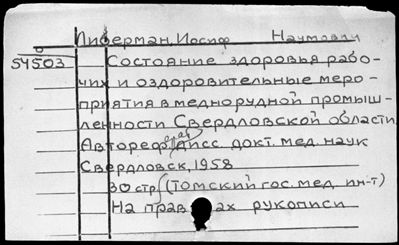 Либерман, Иосиф Наумович
54503
Состояние здоровья рабо-
чих и оздоровительные меро-
приятия в меднорудной промыш-
ленности Свердловской области
Автореф. дисс. докт. мед. наук
Свердловск, 1958
30 стр. (Томский гос. мед. ин-т)
На прав ах рукописи